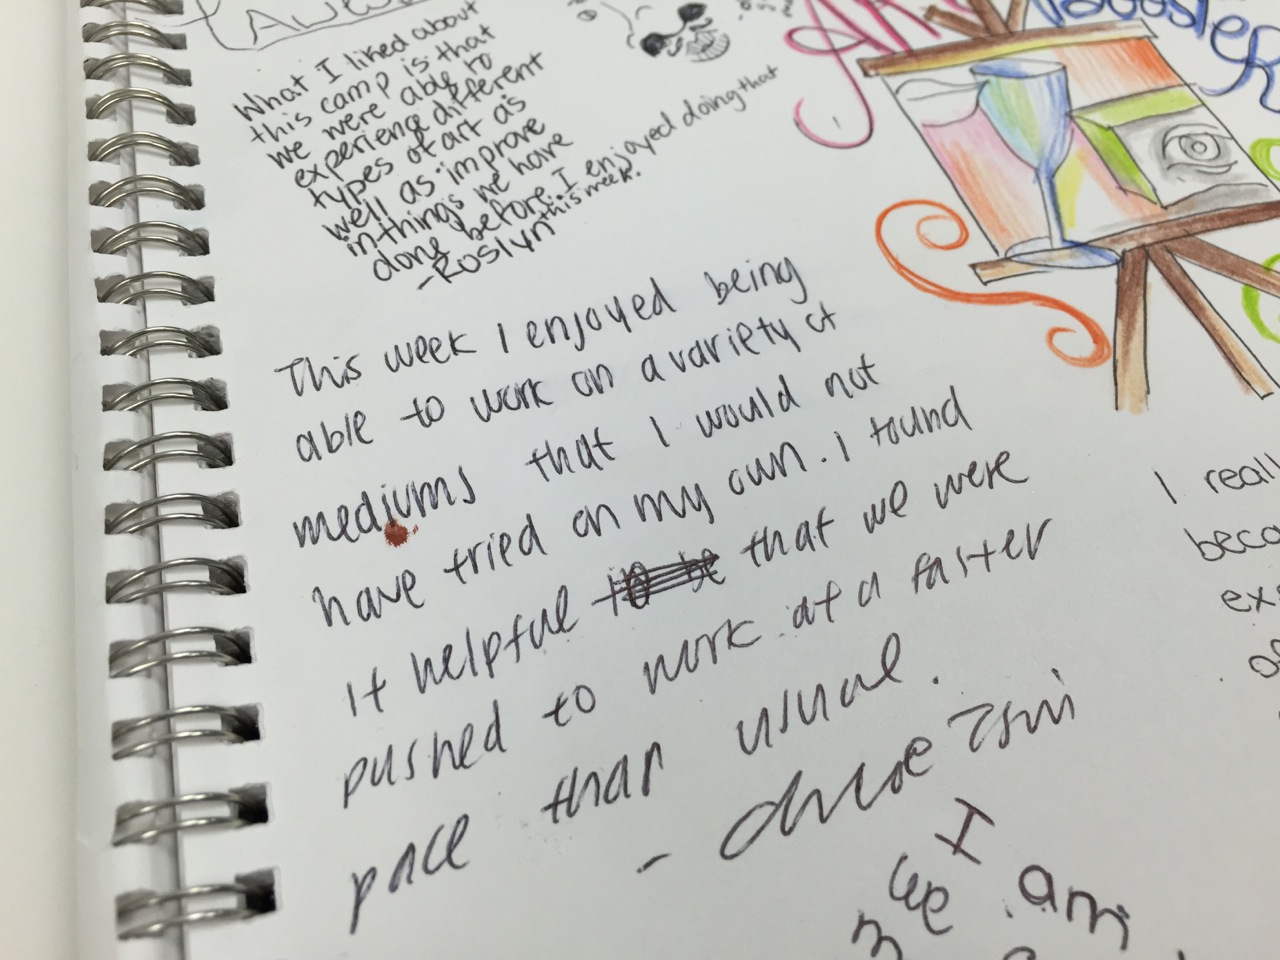 What I liked about
this camp is that
we were able to
experience different
types of art as
well as improve
in things we have
done before. I enjoyed doing that
this week.
-Roslyn
This week I enjoyed being
able to work on a variety of
mediums that I would not
have tried on my own. I found
it helpful to be that we were
pushed to work at a faster
pace than usual.
I reall
beca
ex
I am
we